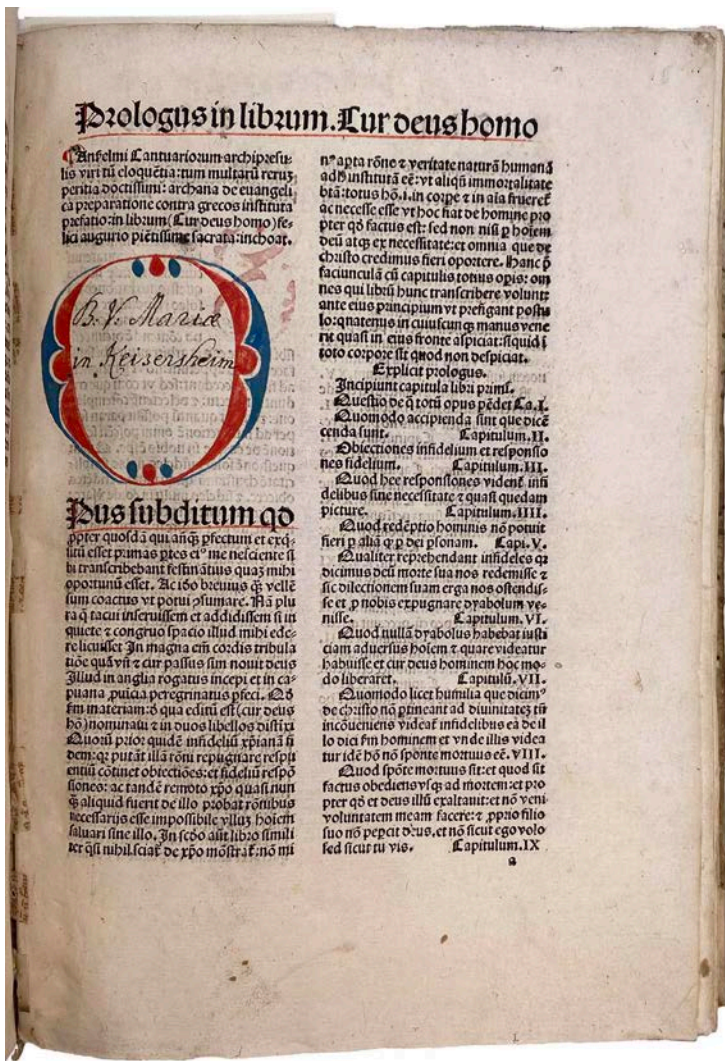 Prologus in librum. Cur deus homo
Anselmi Cantuariorum archipresu-
lis viri tū eloquētia: tum multarū rerum
peritia doctissimi: archana de euangeli
ca preparatione contra grecos instituta
prefatio: in librum (Cur deus homo) fe-
lici augurio piētissime sacrata: inchoat.
B. V. Mariæ
in Keisersheim
O
Pus subditum qd
ꝓpter quosdā qui anq̄ꝫ ꝑfectum et exq̄-
litū esset primas ꝑtes ei⁹ me nesciente si
bi transcribebant festinātius quaꝫ mihi
oportunū esset. Ac iđo breuius q̄ꝫ vellē
sum coactus vt potui ↄsumare. Nā plu
ra q̄ tacui inseruissem et addidissem si in
quiete ⁊ congruo spacio illud mihi ede-
re licuisset In magna em̄ cordis tribula
tiōe quā vn̄ ⁊ cur passus sim nouit deus
Illud in anglia rogatus incepi et in ca-
puana ꝓuicia peregrinatus ꝑfeci. Qđ
km materiam: đ qua editū est (cur deus
hō) nominaui ⁊ in duos libellos distīxi
Quorū prior quidē infideliū xp̄ianā fi
dem: qꝛ putāt illā rōni repugnare respu
entiū cōtinet obiectiōes: et fideliū respō
siones: ac tandē remoto xp̄o quasi nun
q̄ꝫ aliquid fuerit de illo probat rōnibus
necessarijs esse impossibile vllum hoīem
saluari sine illo. In scđo aūt libro simili
ter q̄si nihil sciat̄ de xp̄o mōstrat̄: nō mi
n⁹ apta rōne ⁊ veritate naturā humanā
ad ħ institutā eē: vt aliqn̄ immortalitate
btā: totus hō .i. in corpe ⁊ in aīa frueret̄
ac necesse esse vt hoc fiat de homine pro
pter qđ factus est: sed non nisi ꝑ hoīem
deū atqꝫ ex necessitate: et omnia que de
christo credimus fieri oportere. Hanc p̄
faciunculā cū capitulis totius opis: om
nes qui librū hunc transcribere volunt:
ante eius principium vt prefigant postu
lo: quatenus in cuiuscunqꝫ manus vene
rit quasi in eius fronte aspiciat: siquid i
toto corpore sit quod non despiciat.
Explicit prologus.
Incipiunt capitula libri primi.
Questio de q̄ totū opus pēdet Ca. I.
Quomodo accipienda sint que dicē
cenda sunt. Capitulum. II.
Obiectiones infidelium et responsio
nes fidelium. Capitulum. III.
Quod hee responsiones vident̄ infi
delibus sine necessitate ⁊ quasi quedam
picture. Capitulum. IIII.
Quod redēptio hominis nō potuit
fieri ꝑ aliā q̄ꝫ ꝑ dei ꝑsonam. Capi. V.
Qualiter reprehendant infideles qꝛ
dicimus deū morte sua nos redemisse ⁊
sic dilectionem suam erga nos ostendis-
se et ꝓ nobis expugnare dyabolum ve-
nisse. Capitulum. VI.
Quod nullā dyabolus habebat iusti
ciam aduersus hoīem ⁊ quare videatur
habuisse et cur deus hominem hoc mo-
do liberaret. Capitulū. VII.
Quomodo licet humilia que dicim⁹
de christo nō ꝑtineant ad diuinitatez tn̄
incōueniens videat̄ infidelibus ea de il
lo dici km hominem et vnde illis videa
tur idē hō nō sponte mortuus eē. VIII.
Quod spōte mortuus sit: et quod sit
factus obediens vsqꝫ ad mortem: et pro
pter qđ et deus illū exaltauit: et nō veni
voluntatem meam facere: ⁊ ꝓprio filio
suo nō pepcit deus, et nō sicut ego volo
sed sicut tu vis. Capitulum. IX
a